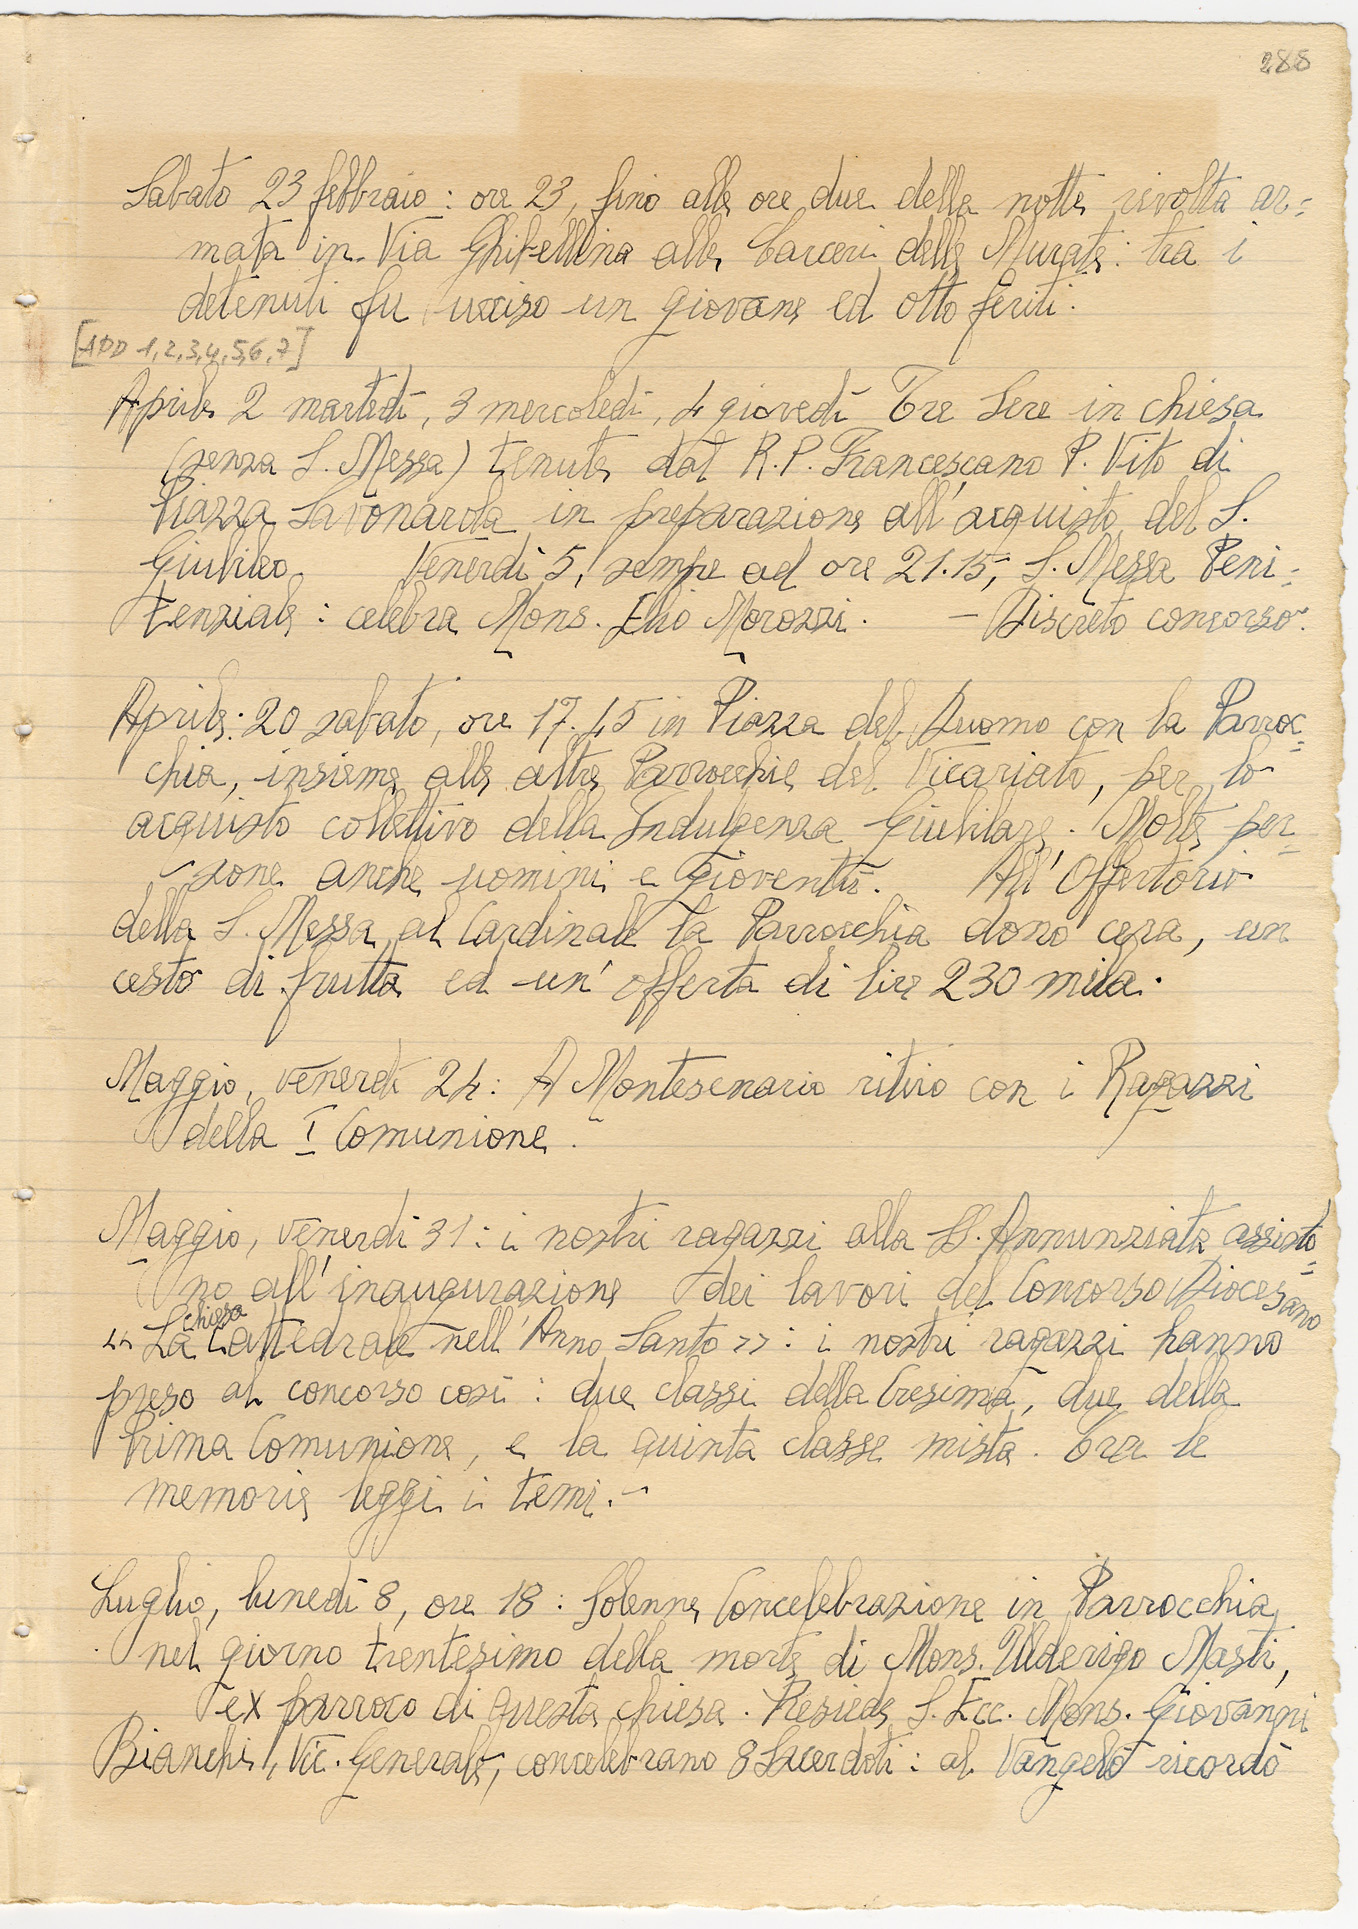 288
Sabato 23 febbraio : ore 23, fino alle ore due della notte rivolta ar=
mata in Via Ghibellina alle Carceri delle Murate : tra i
detenuti fu ucciso un giovane ed otto feriti.
[APP 1,2,3,4,5,6,7]
Aprile 2 martedì, 3 mercoledì, 4 giovedì Tre Sere in chiesa
(senza S. Messa) tenute dal R.P. Francescano P. Vito di
Piazza Savonarola in preparazione all'acquisto del S.
Giubileo. Venerdì 5, sempre ad ore 21.15, S. Messa Peni=
tenziale : celebra Mons. Elio Morozzi. - Discreto concorso.
Aprile: 20 sabato, ore 17.45 in Piazza del Duomo con la Parroc=
chia, insieme alle altre Parrocchie del Vicariato, per lo
acquisto collettivo della Indulgenza Giubilare. Molte per=
sone anche uomini e gioventù. All'Offertorio
della S. Messa al Cardinale la Parrocchia donò cera, un
cesto di frutta ed un'offerta di lire 230 mila.
Maggio, venerdì 24: A Montesenario ritiro con i Ragazzi
della I Comunione.
Maggio, venerdì 31: i nostri ragazzi alla SS. Annunziata assisto=
no all'inaugurazione dei lavori del Concorso Diocesano
chiesa
<< La Cattedrale nell'Anno Santo >> : i nostri ragazzi hanno
preso al concorso così : due classi della Cresima, due della
Prima Comunione, e la quinta classe mista. Tra le
memorie leggi i temi.-
Luglio, lunedì 8, ore 18 : Solenne Concelebrazione in Parrocchia
nel giorno trentesimo della morte di Mons. Ulderigo Masti,
ex parroco di questa chiesa. Presiede S. Ecc. Mons. Giovanni
Bianchi, Vic. Generale, concelebrano 8 Sacerdoti : al Vangelo ricordò